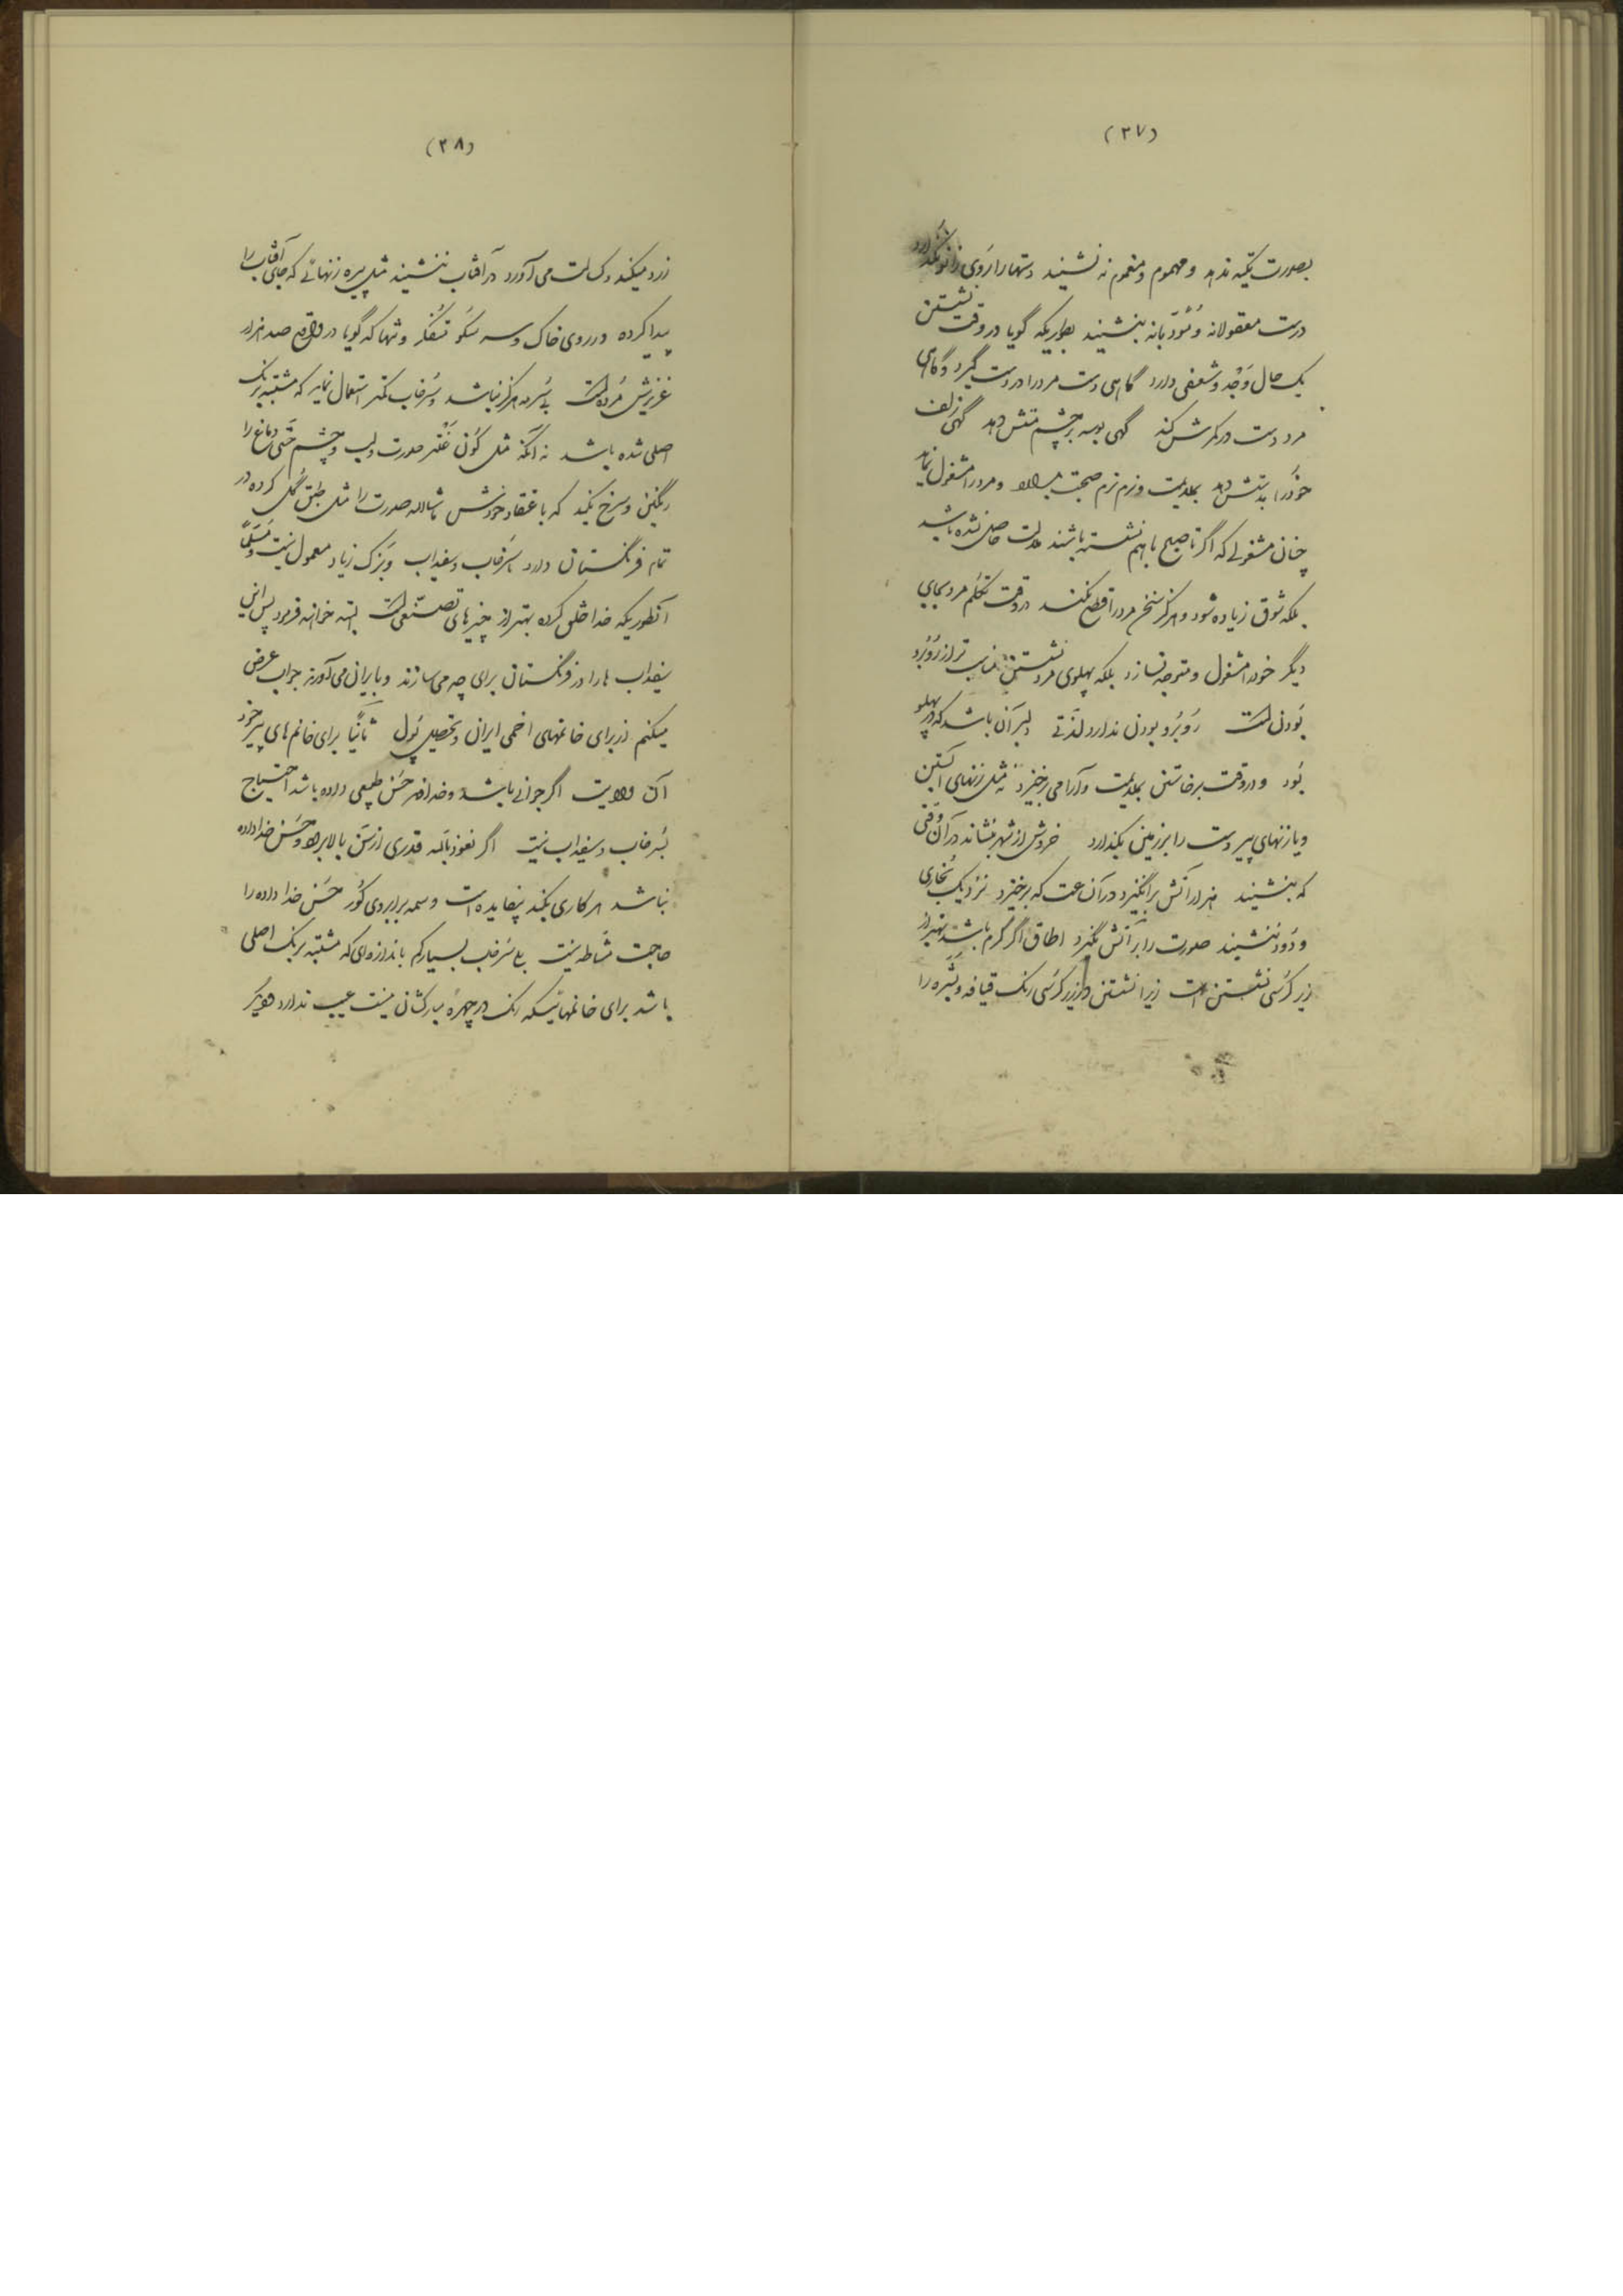 (۳۷)
بصورت تکیه ندهد و مهموم و مغموم نه نشیند دستها را روی زانو بگذارد
درست معقولانه و مُؤدّبانه بنشیند بطوریکه گویا در وقت نشستن
یک حال وَجْد و شعفی دارد گاهی دست مرد را در دست گیرد و گاهی
مرد دست در کمرش کند گهی بوسه بر چشم منش دهد گهی زلف
خود را بدستش دهد بملایمت و نرم نرم صحبت بدارد و مرد را مشغول نماید
چنان مشغولی که اگر تا صبح با هم نشسته باشند ملالت حاصل نشده باشد
بلکه شوق زیاده شود و هرگز سخن مرد را قطع نکند در وقت تکلّم مرد بجای
دیگر خود را مشغول و متوجه نسازد بلکه پهلوی مرد نشستن مناسب تر از رُوبُرو
بُودن است رُوبُرو بودن ندارد لذّتی دلبر آن باشد که در پهلو
بُود و در وقت برخاستن بملایمت و آرامی برخیزد نه مثل زنهای آبستن
و یا زنهای پیر دست را بر زمین بگذارد خروش از شهر بنشاند در آن وقتی
که بنشیند هزار آتش برانگیزد در آن ساعت که برخیزد نزدیک بُخاری
و دود ننشیند صورت را بر آتش نگیرد اطاق اگر گرم باشد بهتر از
زیر کُرسی نشستن است زیرا نشستن در زیر کُرسی رنگ قیافه و بَشَره را
(۳۸)
زرد میکند و کسالت می آورد در آفتاب ننشیند مثل پیره زنهائی که جای آفتاب را
پیدا کرده و در روی خاک و سه سکُو متفکّر و تنها که گویا در واقع صد هزار
عزیزش مُرده است بی سُرمه هرگز نباشد و سُرخاب کمتر استعمال نماید که مشتبه برنگ
اصلی شده باشد نه آنکه مثل کُون عَنْتَر صورت و لب و چشم حتّی دماغ را
رنگین و سرخ بکند که باعتقاد خودش ماشاالله صورت را مثل طَبَق گُل کرده در
تمام فرنگستان دارد سُرخاب و سفیداب و بَزَک زیاد معمول نیست و مُسلّماً
آنطوریکه خدا خلق کرده بهتر از چیزهای تصنّعی است البته خواهند فرمود پس این
سفیداب ها را در فرنگستان برای چه می سازند و بایران می آورند جواب عرض
میکنم از برای خانمهای اخمی ایران و تحصیل پُول ثانیاً برای خانم های پیر خود
آن ولایت اگر جوانی باشد و خداوند حُسْن طبیعی داده باشد احتیاج
بسُرخاب و سفیداب نیست اگر نعوذ بالله قدری از سن بالا برود و حُسْن خدا داده
نباشد هر کاری بکند بیفایده است وسمه بر ابروی کُور حُسْن خدا داده را
حاجت مشاطه نیست بلی سُرخاب بسیار کم باندازه ای که مشتبه برنگ اصلی
باشد برای خانمهائیکه رنگ در چهرهٔ مبارکشان نیست عیب ندارد